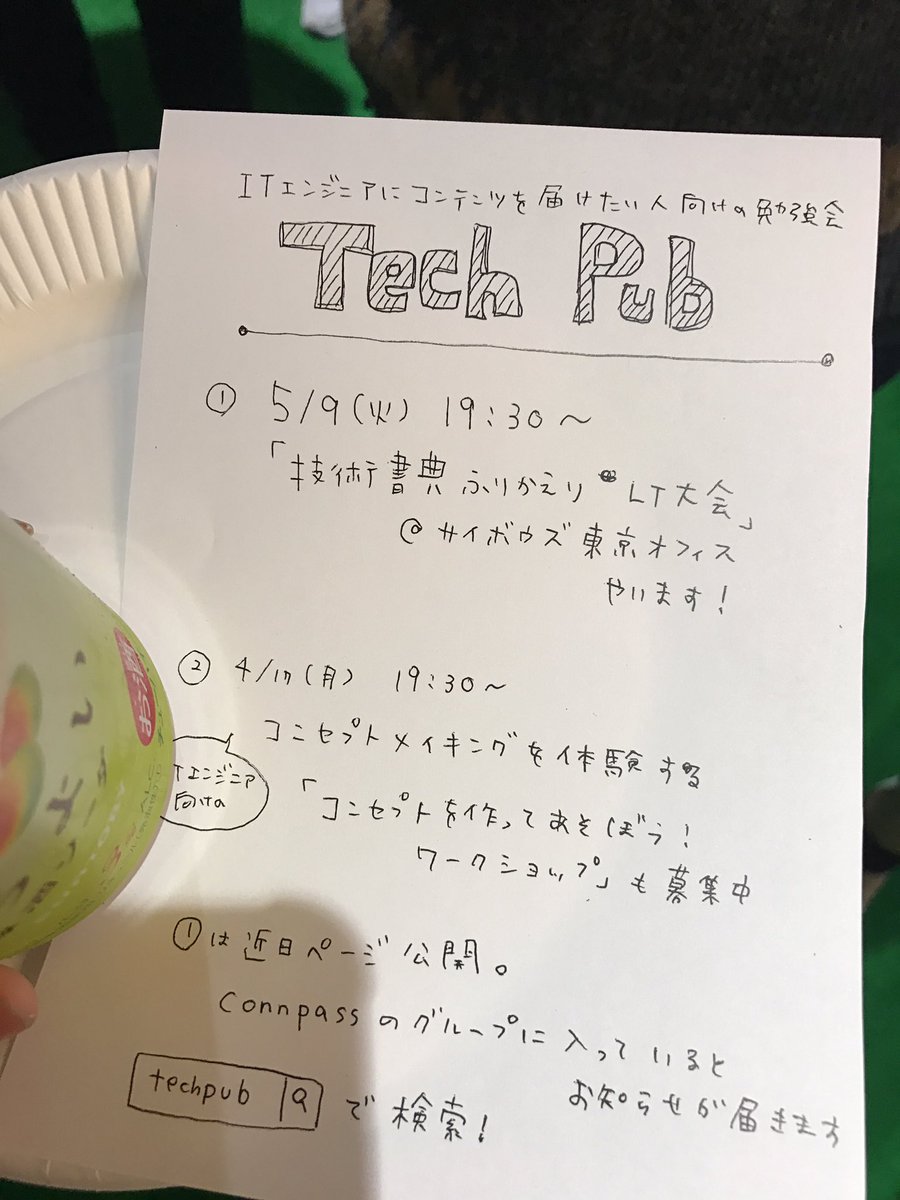 ITエンジニアにコンテンツを届けたい人向けの勉強会
Tech Pub
① 5/9(火) 19:30〜
「技術書典ふりかえり LT大会」
@サイボウズ東京オフィス
やります!
② 4/17(月) 19:30〜
コンセプトメイキングを体験する
ITエンジニア
向けの
「コンセプトを作ってあそぼう!
ワークショップ」も募集中
①は近日ページ公開。
connpassのグループに入っていると
お知らせが届きます
techpub で検索!